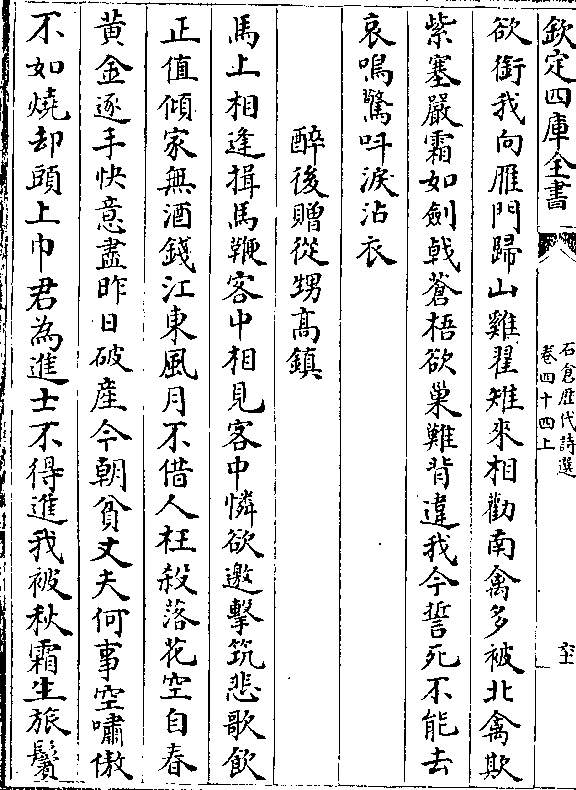 欽定四庫全書
石倉歷代詩選
卷四十四上
欲銜我向雁門歸山雞翟雉來相勸南禽多被北禽欺
紫塞嚴霜如劍戟蒼梧欲巢難背違我今誓死不能去
哀鳴驚呌淚沾衣
醉後贈從甥髙鎮
馬上相逢揖馬鞭客中相見客中憐欲邀擊筑悲歌飲
正值傾家無酒錢江東風月不借人枉殺落花空自春
黄金逐手快意盡昨日破産今朝貧丈夫何事空嘯傲
不如燒却頭上巾君為進士不得進我被秋霜生旅鬢